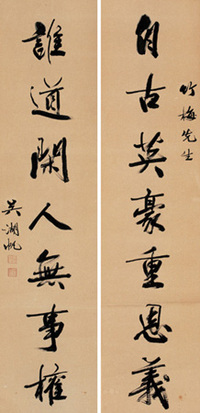 竹梅先生
自古英豪重恩義
誰道閑人無事權
吳湖帆